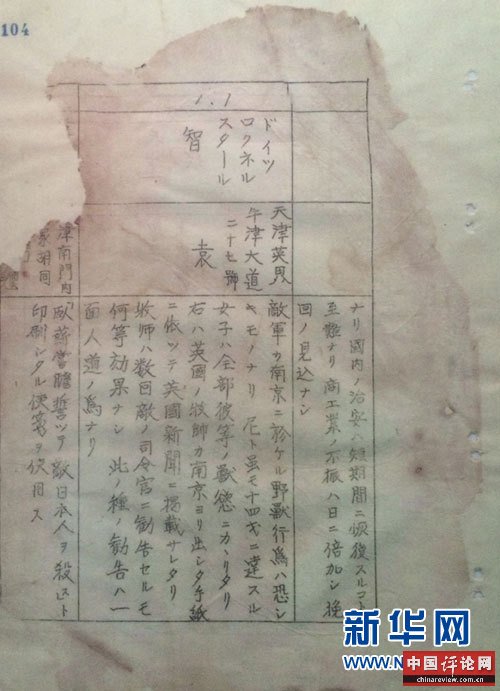 104
1.1
ドイツ
ロクネル
スタール
智
天津英界
牛津大道
二十七號
袁
津南門内
家胡同
ナリ國内ノ治安ハ短期間ニ恢復スルコト
至難ナリ商工業ノ不振ハ日ニ倍加シ挽
回ノ見込ナシ
敵軍カ南京ニ於ケル野獣行為ハ恐シ
キモノナリ 尼ト虽モ十四才ニ達スル
女子ハ全部彼等ノ獣慾ニカヽリタリ
右ハ英國ノ牧師カ南京ヨリ出シタ手紙
ニ依ツテ英國新聞ニ掲載サレタリ
牧师ハ数回敵ノ司令官ニ勧告セルモ
何等効果ナシ 此ノ種ノ勧告ハ一
面人道ノ為ナリ
「臥薪嘗膽誓ツテ敵日本人ヲ殺ス」ト
印刷シタル便箋ヲ使用ス
新华网
WWW.N
中国评论网
chinareview.cn